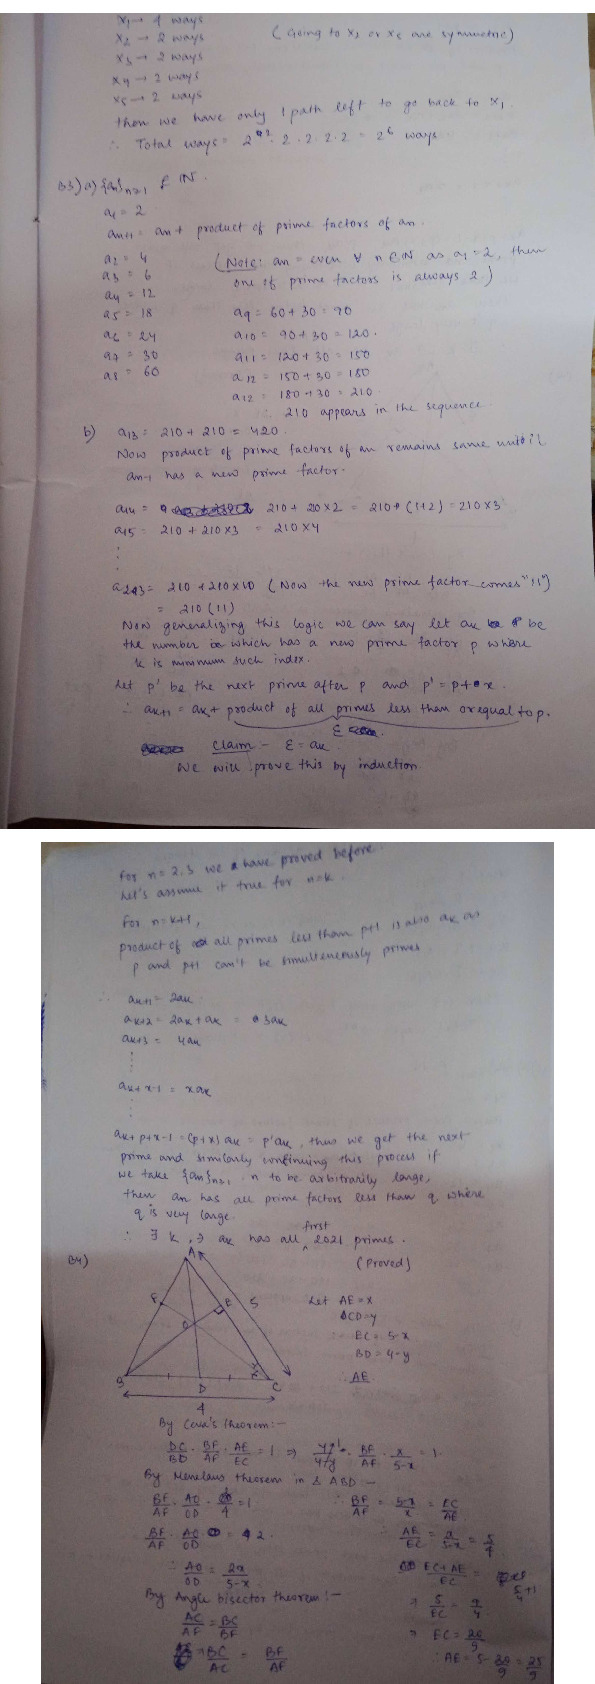 x1 → 4 ways
x2 → 2 ways (Going to x2 or x5 are symmetric)
x3 → 2 ways
x4 → 2 ways
x5 → 2 ways
then we have only 1 path left to go back to x1.
∴ Total ways = 2² · 2 · 2 · 2 · 2 = 2⁶ ways.
B3) a) {an}n≥1 ∈ IN.
a1 = 2
an+1 = an + product of prime factors of an.
a2 = 4 (Note: an = even ∀ n ∈ N as a1 = 2, then
a3 = 6 one of prime factors is always 2.)
a4 = 12
a5 = 18 a9 = 60 + 30 = 90
a6 = 24 a10 = 90 + 30 = 120.
a7 = 30 a11 = 120 + 30 = 150
a8 = 60 a12 = 150 + 30 = 180
a12 = 180 + 30 = 210.
∴ 210 appears in the sequence.
b) a13 = 210 + 210 = 420.
Now product of prime factors of an remains same until
an-1 has a new prime factor.
a14 = 210 + 20×2 = 210 · (1+2) = 210×3
a15 = 210 + 210×3 = 210×4
⋮
a243 = 210 + 210×10 (Now the new prime factor comes "11")
= 210 (11)
Now generalizing this logic we can say let ak be
the number in which has a new prime factor p where
k is minimum such index.
Let p' be the next prime after p and p' = p + x.
∴ ak+1 = ak + product of all primes less than or equal to p.
ε
Claim - ε = ak
We will prove this by induction.
For n = 2.3 we have proved before.
Let's assume it true for n=k.
For n = k+1,
product of all primes less than p+1 is also ak as
p and p+1 can't be simultaneously primes.
∴ ak+1 = 2ak
ak+2 = 2ak + ak = 3ak
ak+3 = 4ak
⋮
ak+x-1 = xak
⋮
ak+p+x-1 = (p+x) ak = p'ak, thus we get the next
prime and similarly continuing this process if
we take {an}n≥1, n to be arbitrarily large,
then an has all prime factors less than q where
q is very large.
∴ ∃ k, ∋ ak has all first 2021 primes.
(Proved)
B4)
A
F
E
5
O
B
D
C
4
Let AE = x
CD = y
∴ EC = 5-x
BD = 4-y
∴ AE
By Ceva's theorem:-
DC/BD · BF/AF · AE/EC = 1 ⇒ y/4-y · BF/AF · x/5-x = 1.
By Menelaus theorem in Δ ABD:-
∴ BF/AF = 5-x/x = EC/AE
BF/AF · AO/OD = 2.
∴ AE/EC = x/5-x = 5/4
∴ AO/OD = 2x/5-x
EC+AE/EC = 5/4 + 1
By Angle bisector theorem:-
⇒ 5/EC = 9/4
AC/AF = BC/BF
⇒ EC = 20/9
⇒ BC/AC = BF/AF
∴ AE = 5 - 20/9 = 25/9